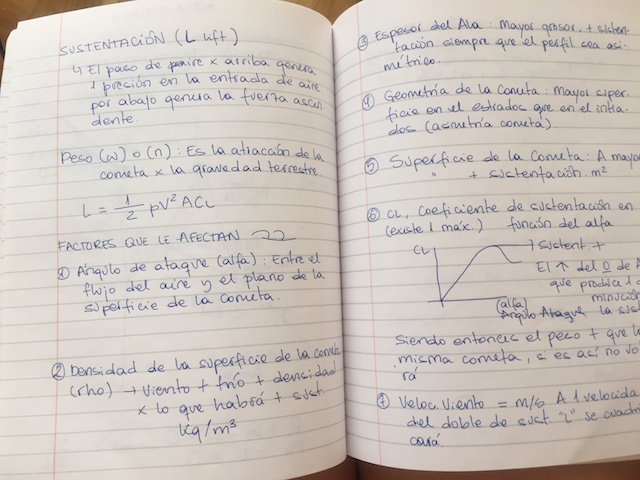 SUSTENTACIÓN (L lift)
↳ El paso de aire x arriba genera
1 presión en la entrada de aire
por abajo genera la fuerza ascen
dente.
Peso (w) o (n) : Es la atracción de la
cometa x la gravedad terrestre
L = 1/2 ρV² ACL
FACTORES QUE LE AFECTAN
① Ángulo de ataque (alfa) : Entre el
flujo del aire y el plano de la
superficie de la cometa.
② Densidad de la superficie de la cometa
(rho) → Viento + frío + densidad
x lo que habrá + sust.
Kg/m³
③ Espesor del Ala : Mayor grosor, + susten-
tación siempre que el perfil sea asi-
métrico.
④ Geometría de la Cometa : Mayor super-
ficie en el estrados que en el intra-
dos (asmetría cometa).
⑤ Superficie de la Cometa : A mayor
" + sustentación. m²
⑥ CL, Coeficiente de sustentación en
(existe 1 máx.) función del alfa
CL
→ sustent +
El ↑ del º de A
que produca 1 d
minución
(alfa)
Ángulo Ataque
la sust
Siendo entonces el peso + que la
misma cometa, si es así no vo
rá
⑦ Veloc. Viento = m/s A 1 velocida
del doble de sust "L" se cuadri
cará